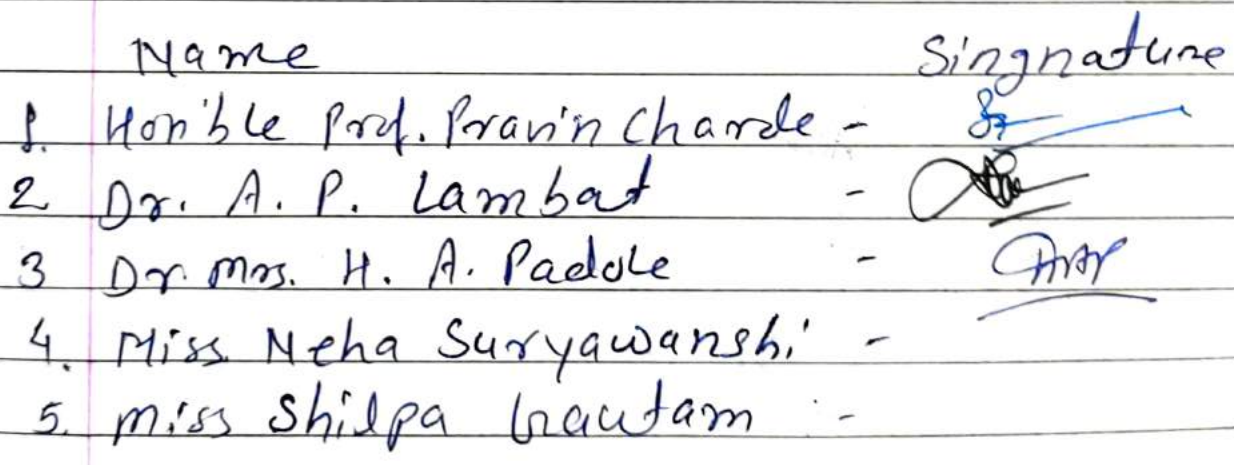 Name Singnature
1. Hon'ble Prof. Pravin Charde -
2 Dr. A. P. Lambat -
3 Dr. Mrs. H. A. Padole -
4. Miss Neha Suryawanshi -
5. Miss Shilpa Gautam -